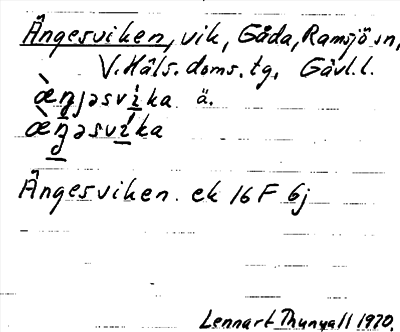 Ängesviken, vik, Gåda, Ramsjö sn,
V. Häls. doms. tg, Gävl. l.
æ̀ŋjəsví̲ka ä.
æ̀ŋ̲əsví̲ka
Ängesviken. ek 16 F 6j
Lennart Thunvall 1970.